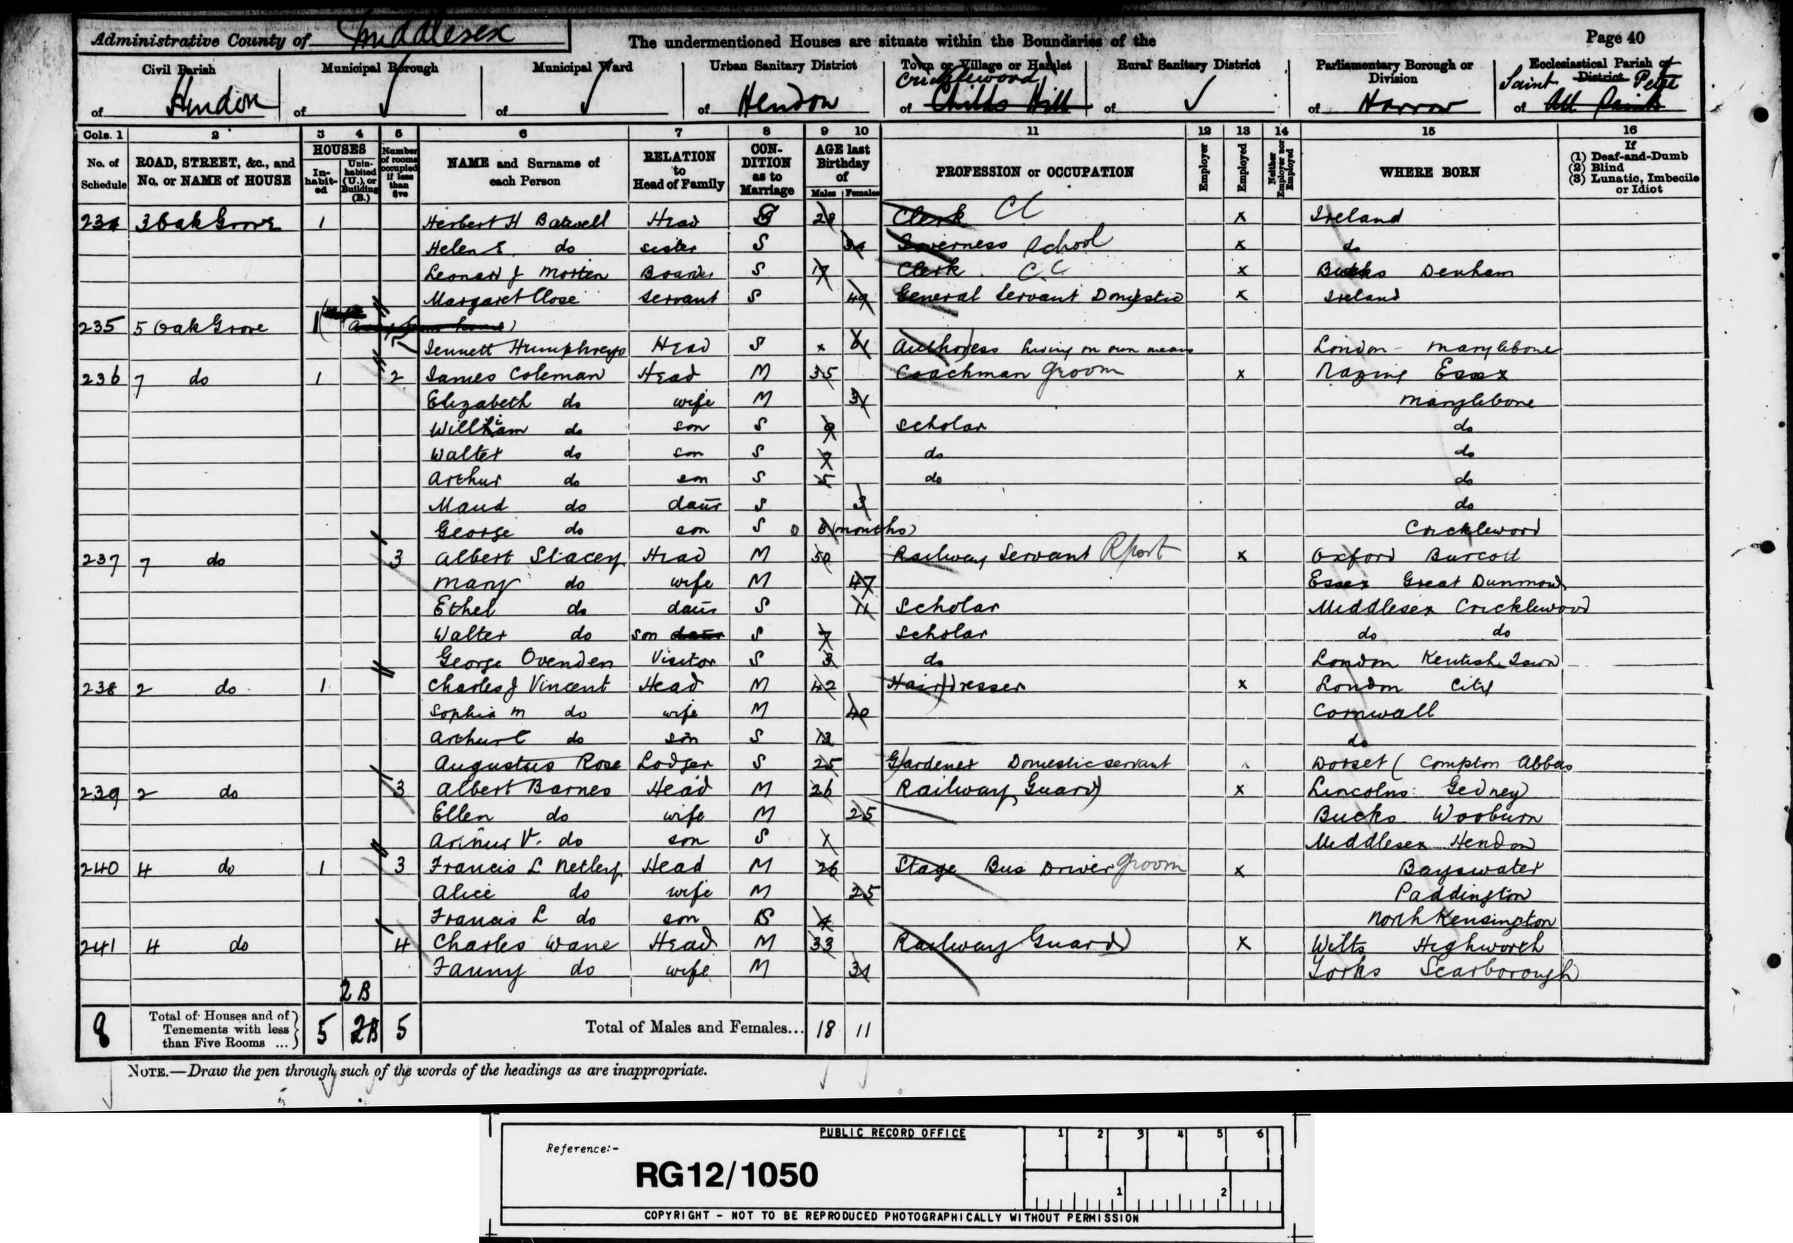 Administrative County of Middlesex The undermentioned Houses are situate within the Boundaries of the Page 40
Civil Parish Municipal Borough Municipal Ward Urban Sanitary District Town or Village or Hamlet Rural Sanitary District Parliamentary Borough or Division Ecclesiastical Parish or District
of Hendon of of of Hendon of Cricklewood Childs Hill of of Harrow of Saint Peter All Saints
Cols. 1 2 3 4 5 6 7 8 9 10 11 12 13 14 15 16
No. of Schedule ROAD, STREET, &c., and No. or NAME of HOUSE HOUSES Inhabited Uninhabited (U.), or Building (B.) Number of rooms occupied if less than five NAME and Surname of each Person RELATION to Head of Family CONDITION as to Marriage AGE last Birthday of Males Females PROFESSION or OCCUPATION Employer Employed Neither Employer nor Employed WHERE BORN If (1) Deaf-and-Dumb (2) Blind (3) Lunatic, Imbecile or Idiot
234 3 Oak Grove 1 Herbert H Head S 28 Clerk CC x Ireland
Helen E do sister S Governess School x do
Leonard J Morten Boarder S 17 Clerk CC x Bucks Denham
Margaret Close Servant S 49 General Servant Domestic x Ireland
235 5 Oak Grove 1
Jennett Humphreys Head S x 61 Authoress living on own means London Marylebone
236 7 do 1 2 James Coleman Head M 35 Coachman Groom x Nazing Essex
Elizabeth do wife M 31 Marylebone
William do son S 9 Scholar do
Walter do son S 7 do do
Arthur do son S 5 do do
Maud do daur S 3 do
George do son S 0 (months) Cricklewood
237 7 do 3 Albert Stacey Head M 50 Railway Servant R Port x Oxford Burcott
Mary do wife M 47 Essex Great Dunmow
Ethel do daur S 11 Scholar Middlesex Cricklewood
Walter do son daur S 7 Scholar do do
George Ovenden Visitor S 3 do London Kentish Town
238 2 do 1 Charles J Vincent Head M 42 Hairdresser x London City
Sophia M do wife M 40 Cornwall
Arthur C do son S 13 do
Augustus Rose Lodger S 25 Gardener Domestic servant Dorset (Compton Abbas
239 2 do 3 Albert Barnes Head M 26 Railway Guard x Lincolns Gedney
Ellen do wife M 25 Bucks Wooburn
Arthur V. do son S Middlesex Hendon
240 4 do 1 3 Francis L Netley Head M 26 Stage Bus Driver Groom x Bayswater
Alice do wife M 25 Paddington
Francis L do son S 4 North Kensington
241 4 do 4 Charles Wane Head M 33 Railway Guard x Wilts Highworth
Fanny do wife M 31 Yorks Scarborough
2B
8 Total of Houses and of Tenements with less than Five Rooms ... 5 2B 5 Total of Males and Females... 18 11
NOTE.—Draw the pen through such of the words of the headings as are inappropriate.
PUBLIC RECORD OFFICE 1 2 3 4 5 6
Reference:-
RG12/1050
1 2
COPYRIGHT - NOT TO BE REPRODUCED PHOTOGRAPHICALLY WITHOUT PERMISSION